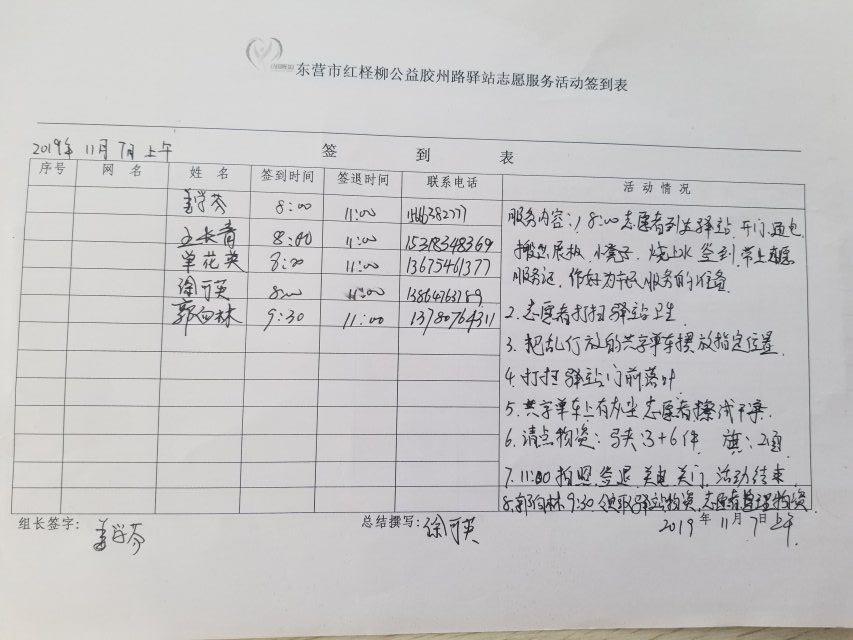 东营市红柽柳公益胶州路驿站志愿服务活动签到表
签到表
2019年 11月 7日 上午
序号 网名 姓名 签到时间 签退时间 联系电话 活动情况
姜学芬 8:00 11:00
王长青 8:00 11:00 15318348369
单花英 8:00 11:00 13675461377
徐可英 8:00 11:00 13864763789
郭向林 9:30 11:00 13780764311
服务内容:1, 8:00志愿者到达驿站,开门、通电
搬出展板、小凳子、烧上水 签到、带上志愿
服务证,作好为市民服务的准备
2.志愿者打扫驿站卫生
3、把乱停放的共享单车摆放指定位置
4、打扫驿站门前落叶
5、共享单车上有灰尘志愿者擦拭干净
6、清点物资: 3+6件 旗:2面
7、11:00拍照、签退、关电、关门、活动结束
8.郭向林9:30领取驿站物资,志愿者整理物资
组长签字: 姜学芬 总结撰写: 徐可英 2019年 11月 7日上午